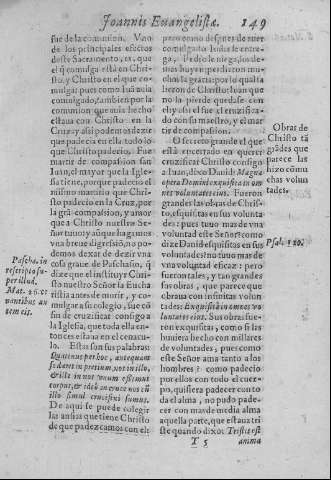 Joannis Euangelistæ. 149
fue de la comunion. Vno
de los principales efectos
deste Sacramento, es, que
el q̃ comulga està en Chri-
sto, y Christo en el que co-
mulga: pues como S. Iuã auia
comulgado, tambien por la
comunion que auia hecho
estaua con Christo en la
Cruz: y assi podemos dezir
que padecia en ella todo lo
que Christo padecio. Fue
martir de compasion san
Iuan, el mayor que la Igle-
sia tiene, porque padecio el
mismo martirio que Chris-
to padecio en la Cruz, por
la grã compasion, y amor
que a Christo nuestro Se-
ñor tuuo: y aũque hagamos
vna breue digresiõ, no po-
demos dexar de dezir vna
cosa graue de Pascasio, q̃
dize que el instituyr Chris-
to nuestro Señor la Eucha
ristia antes de morir, y co-
mulgar a su colegio, fue cõ
fin de crucificar consigo a
la Iglesia, que toda ella en-
tonces estaua en el cenacu-
lo. Estas son sus palabras:
Quatenus per hoc, antequam
se daret in pretium, nos in illo,
& ille in nos vnum essemus
corpus, & ideo antè nos cũ
illo simul crucifixi sumus.
De aqui se puede colegir
las ansias que tiene Christo
de que padezcamos con el:
Paschas. in
rescripto su-
per illud.
Mat. 26. Cœ
nantibus au
tem eis.
pero como despues de auer
comulgado Iudas le entre-
ga, S. Pedro le niega, los de-
mas huyen y le desampa-
ran, solo san Iuan quiere que
no la pierde quedase con
el: y assi el fue el crucifica-
do con su maestro, y el mar-
tir de compasion.
El secreto grande el que
està encerrado en querer
crucificar Christo consigo a
Iuan, dixo Dauid: Magna
opera Domini exquisita in om
nes voluntates eius. Fueron
grandes las obras de Chris-
to, esquisitas en sus volunta
des: pues tuuo mas de vna
voluntad este Señor? como
dize Dauid esquisitas en sus
voluntades? no tuuo mas de
vna voluntad eficaz: pero
fue tontales, y tan grandes
sus obras, que parece que
obraua con infinitas volun-
tades: Exquisita in omnes vo
luntates eius. Sus obras fue-
ron exquisitas, como si las
hubiera hecho con millares
de voluntades, pues como
este Señor ama tanto a los
hombres? como padecio
por ellos con todo el cuer-
po, quisiera padecer con to
da el alma, no pudo pade-
cer con mas de media alma
aquella parte, que estaua tri
ste quando dixo: Tristis est
T 5 anima
Obras de
Christo tã
grãdes que
parece las
hizo cõ mu
chas volun
tades.
Psal. 110.